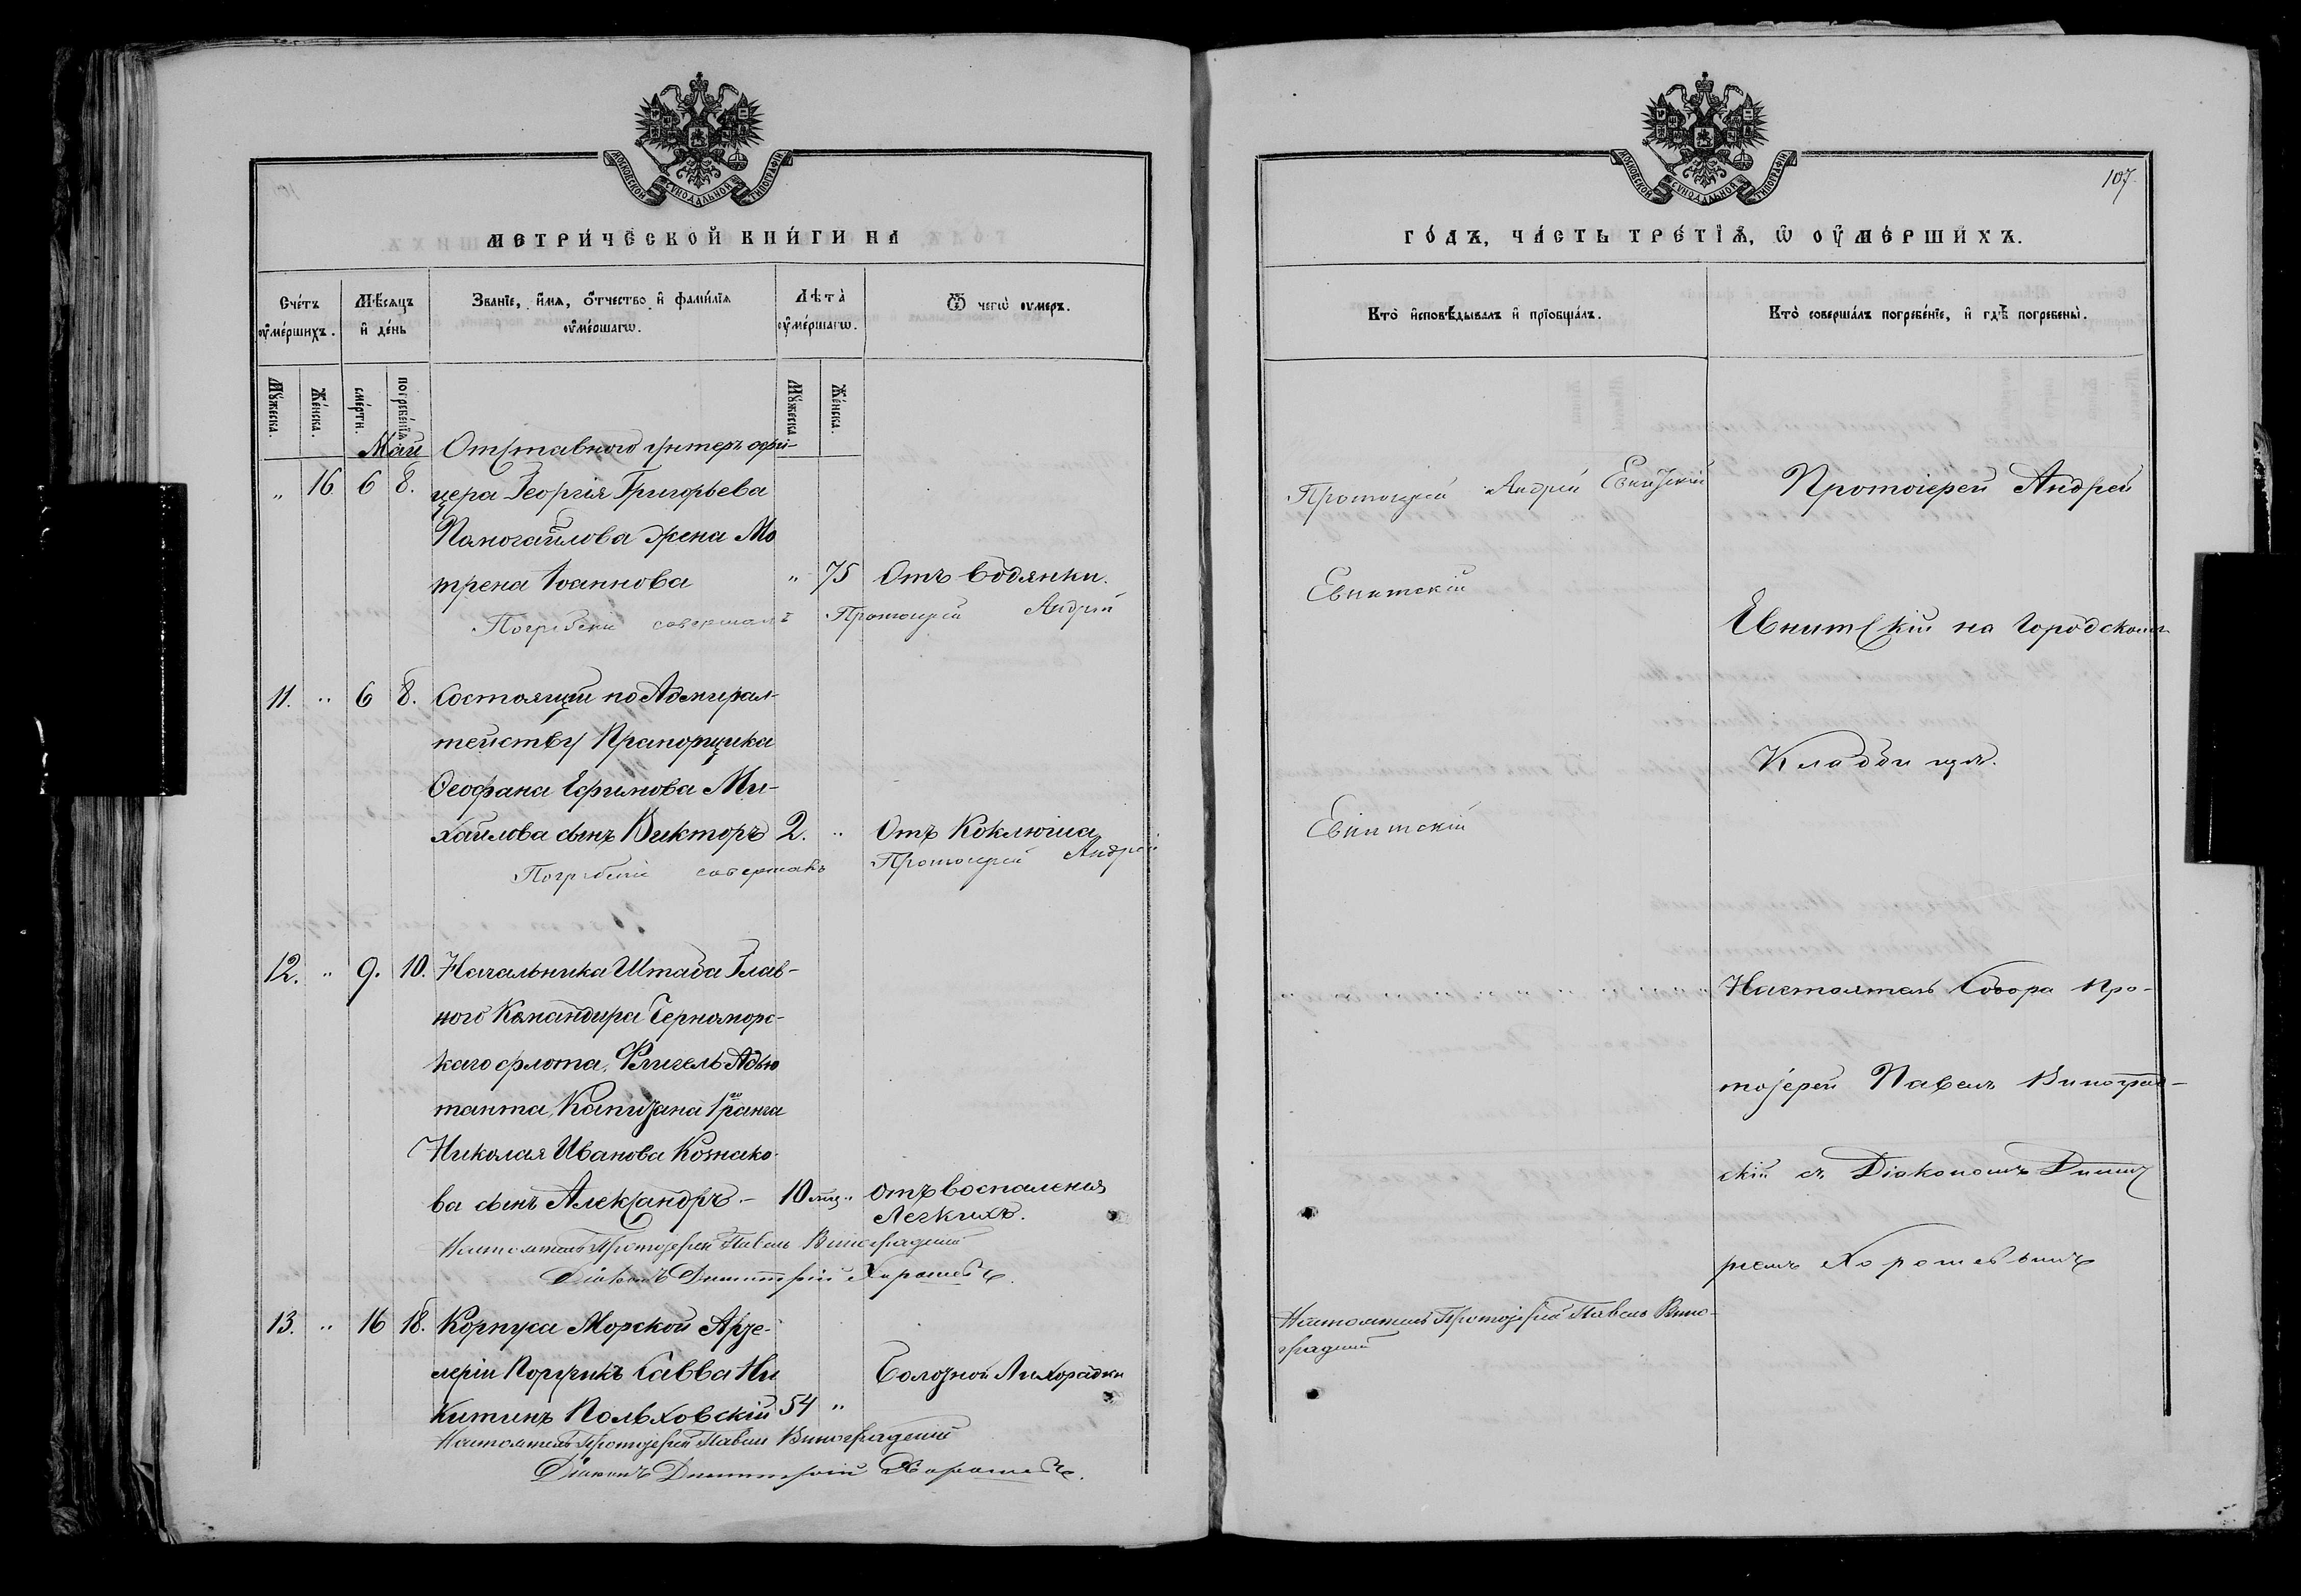 МОСКОВСКОЙ СУНОДАЛЬНОЙ ТИПОГРАФІИ
МЕТРИ́ЧЕСКОЙ КНИ́ГИ НА
Сче́тъ ᲂу҆ме́ршихъ.
Мѣ́сѧцъ и҆ де́нь
Зва́нїе, и҆́мѧ, ѻ҆́тчество и҆ фами́лїѧ ᲂу҆ме́ршагѡ.
Лѣта̀ ᲂу҆ме́ршагѡ.
Ѿ чегѡ̀ ᲂу҆меръ.
Мꙋ́жеска.
Же́нска.
сме́рти.
погребе́нїѧ
Мꙋ́жеска
Же́нска.
Май Отставного унтеръ офи-
„ 16 6 8. цера Георгія Григорьева
Помогайлова жена Мо
трена Іоаннова „ 75 Отъ водянки.
Погребени совершалъ Протоіерей Андрей
11. „ 6 8. Состоящи по Адмирал-
тейству Прапорщика
Ѳеофана Ефимова Ми-
хайлова сынъ Викторъ 2. „ Отъ Коклюша
Погребеніе совершалъ Протоіерей Андрей
12. „ 9. 10. Начальника Штаба Глав-
ного Командира Черноморс-
каго флота, Флигель Адъю
танта, Капитана 1го ранга
Николая Иванова Казнако-
ва сынъ Александръ. – 10 мц. „ отъ воспаленія
Легкихъ.
Настоятель Протоіерей Павелъ Виноградскій
Діаконъ Димитрій Хорошевъ.
13. „ 16 18. Корпуса Морской Арте-
леріи Поручикъ Савва Ни Болотной Лихорадки
китинъ Польховскій 54 „
Настоятель Протоіерей Павелъ Виноградскій
Діаконъ Димитрій Хорошевъ.
МОСКОВСКОЙ СУНОДАЛЬНОЙ ТИПОГРАФІИ
107.
ГО́ДЪ, ЧА́СТЬ ТРЕ́ТІѦ, Ѡ҆ ОУ҆МЕ́РШИХЪ.
Кто̀ и҆сповѣ́дывалъ и҆ прїѻбща́лъ.
Кто̀ соверша́лъ погребе́нїе, и҆ гдѣ̀ погребены̀.
Протоіерей Андрей Евнитскій
Протоіерей Андрей
Евнитскій
Евнитскій на Городскомъ
Кладбищѣ.
Евнитскій
Настоятель Собора Про-
тоіерей Павелъ Виноград-
скій съ Діакономъ Димит
ріемъ Хорошевымъ
Настоятель Протоіерей Павелъ Вино-
градскій